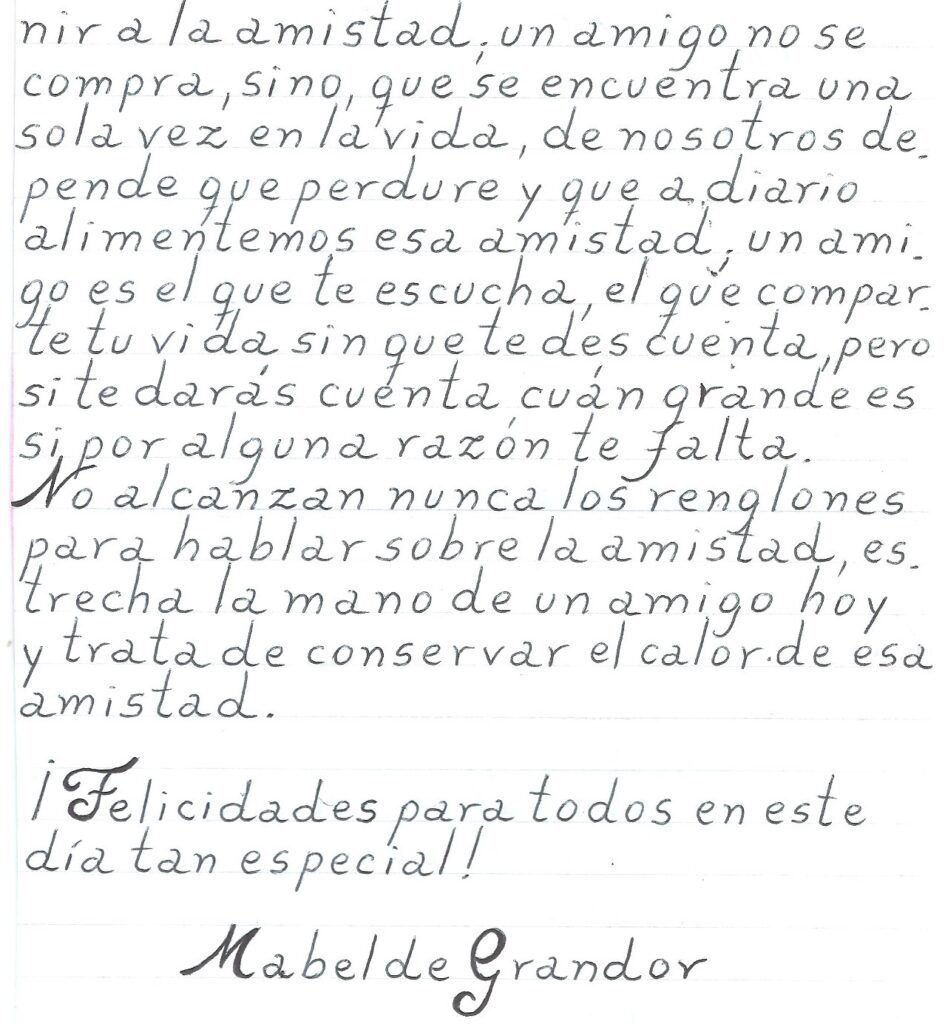 nir a la amistad, un amigo no se
compra, sino, que se encuentra una
sola vez en la vida, de nosotros de-
pende que perdure y que a diario
alimentemos esa amistad, un ami-
go es el que te escucha, el que compar-
te tu vida sin que te des cuenta, pero
si te darás cuenta cuán grande es
si por alguna razón te falta.
No alcanzan nunca los renglones
para hablar sobre la amistad, es-
trecha la mano de un amigo hoy
y trata de conservar el calor de esa
amistad.
¡Felicidades para todos en este
día tan especial!
Mabel de Grandor